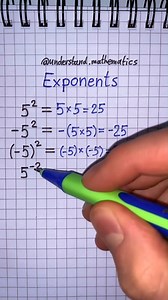 @understand.mathematics
Exponents
5² = 5×5=25
-5² = -(5×5)=-25
(-5)² = (-5)×(-5)=
5⁻²